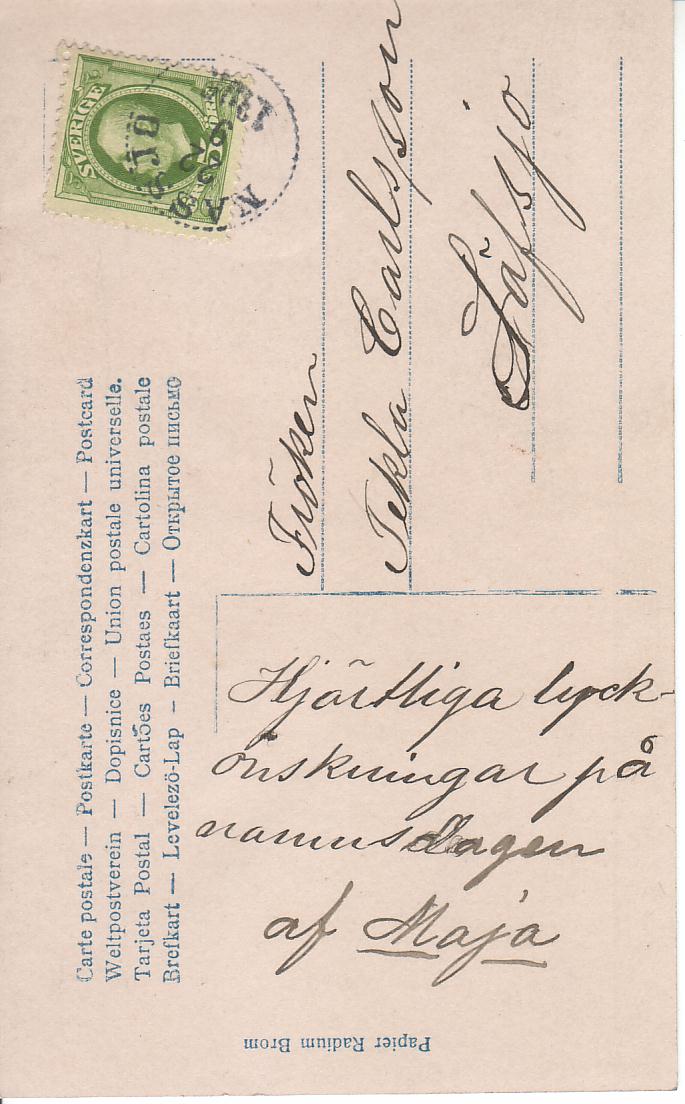 Carte postale — Postkarte — Correspondenzkart — Postcard
Weltpostverein — Dopisnice — Union postale universelle.
Tarjeta Postal — Cartões Postaes — Cartolina postale
Brefkart — Levelezö-Lap — Briefkaart — Открытое письмо
SVERIGE
NÄSSJÖ
Fröken
Tekla Carlsson
Säfsjö
Hjärtliga lyck-
önskningar på
namnsdagen
af Maja
Papier Radium Brom